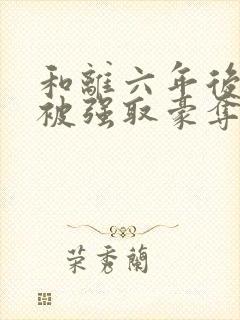 和離六年後
被强取豪奪
荣秀蘭